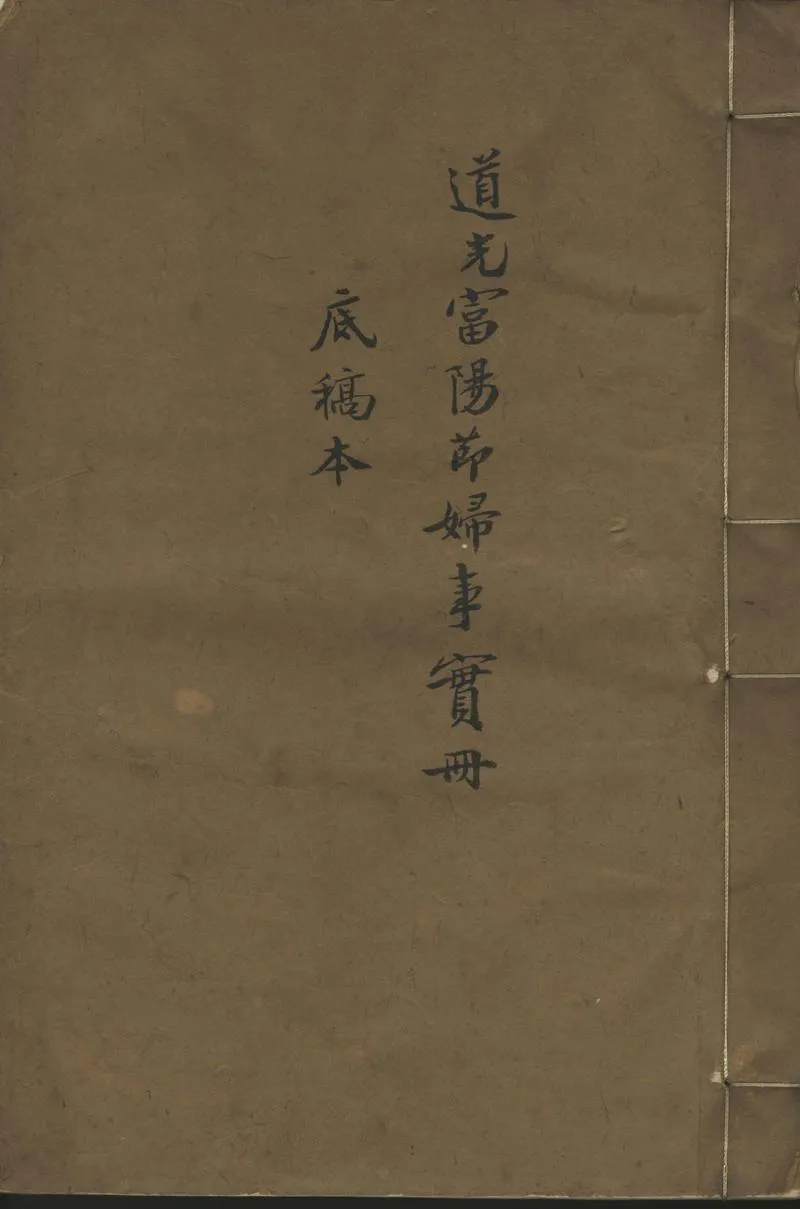 道光富陽節婦事實冊
底稿本